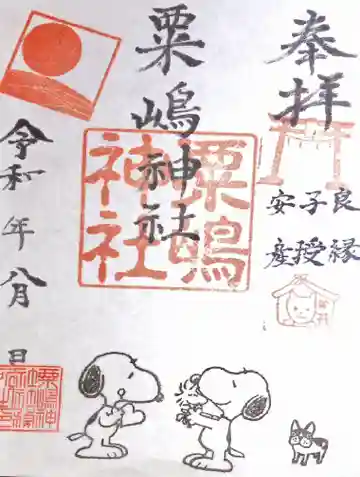 奉拝
良縁
子授
安産
粟嶋神社
粟嶋
神社
令和 年 八月 日